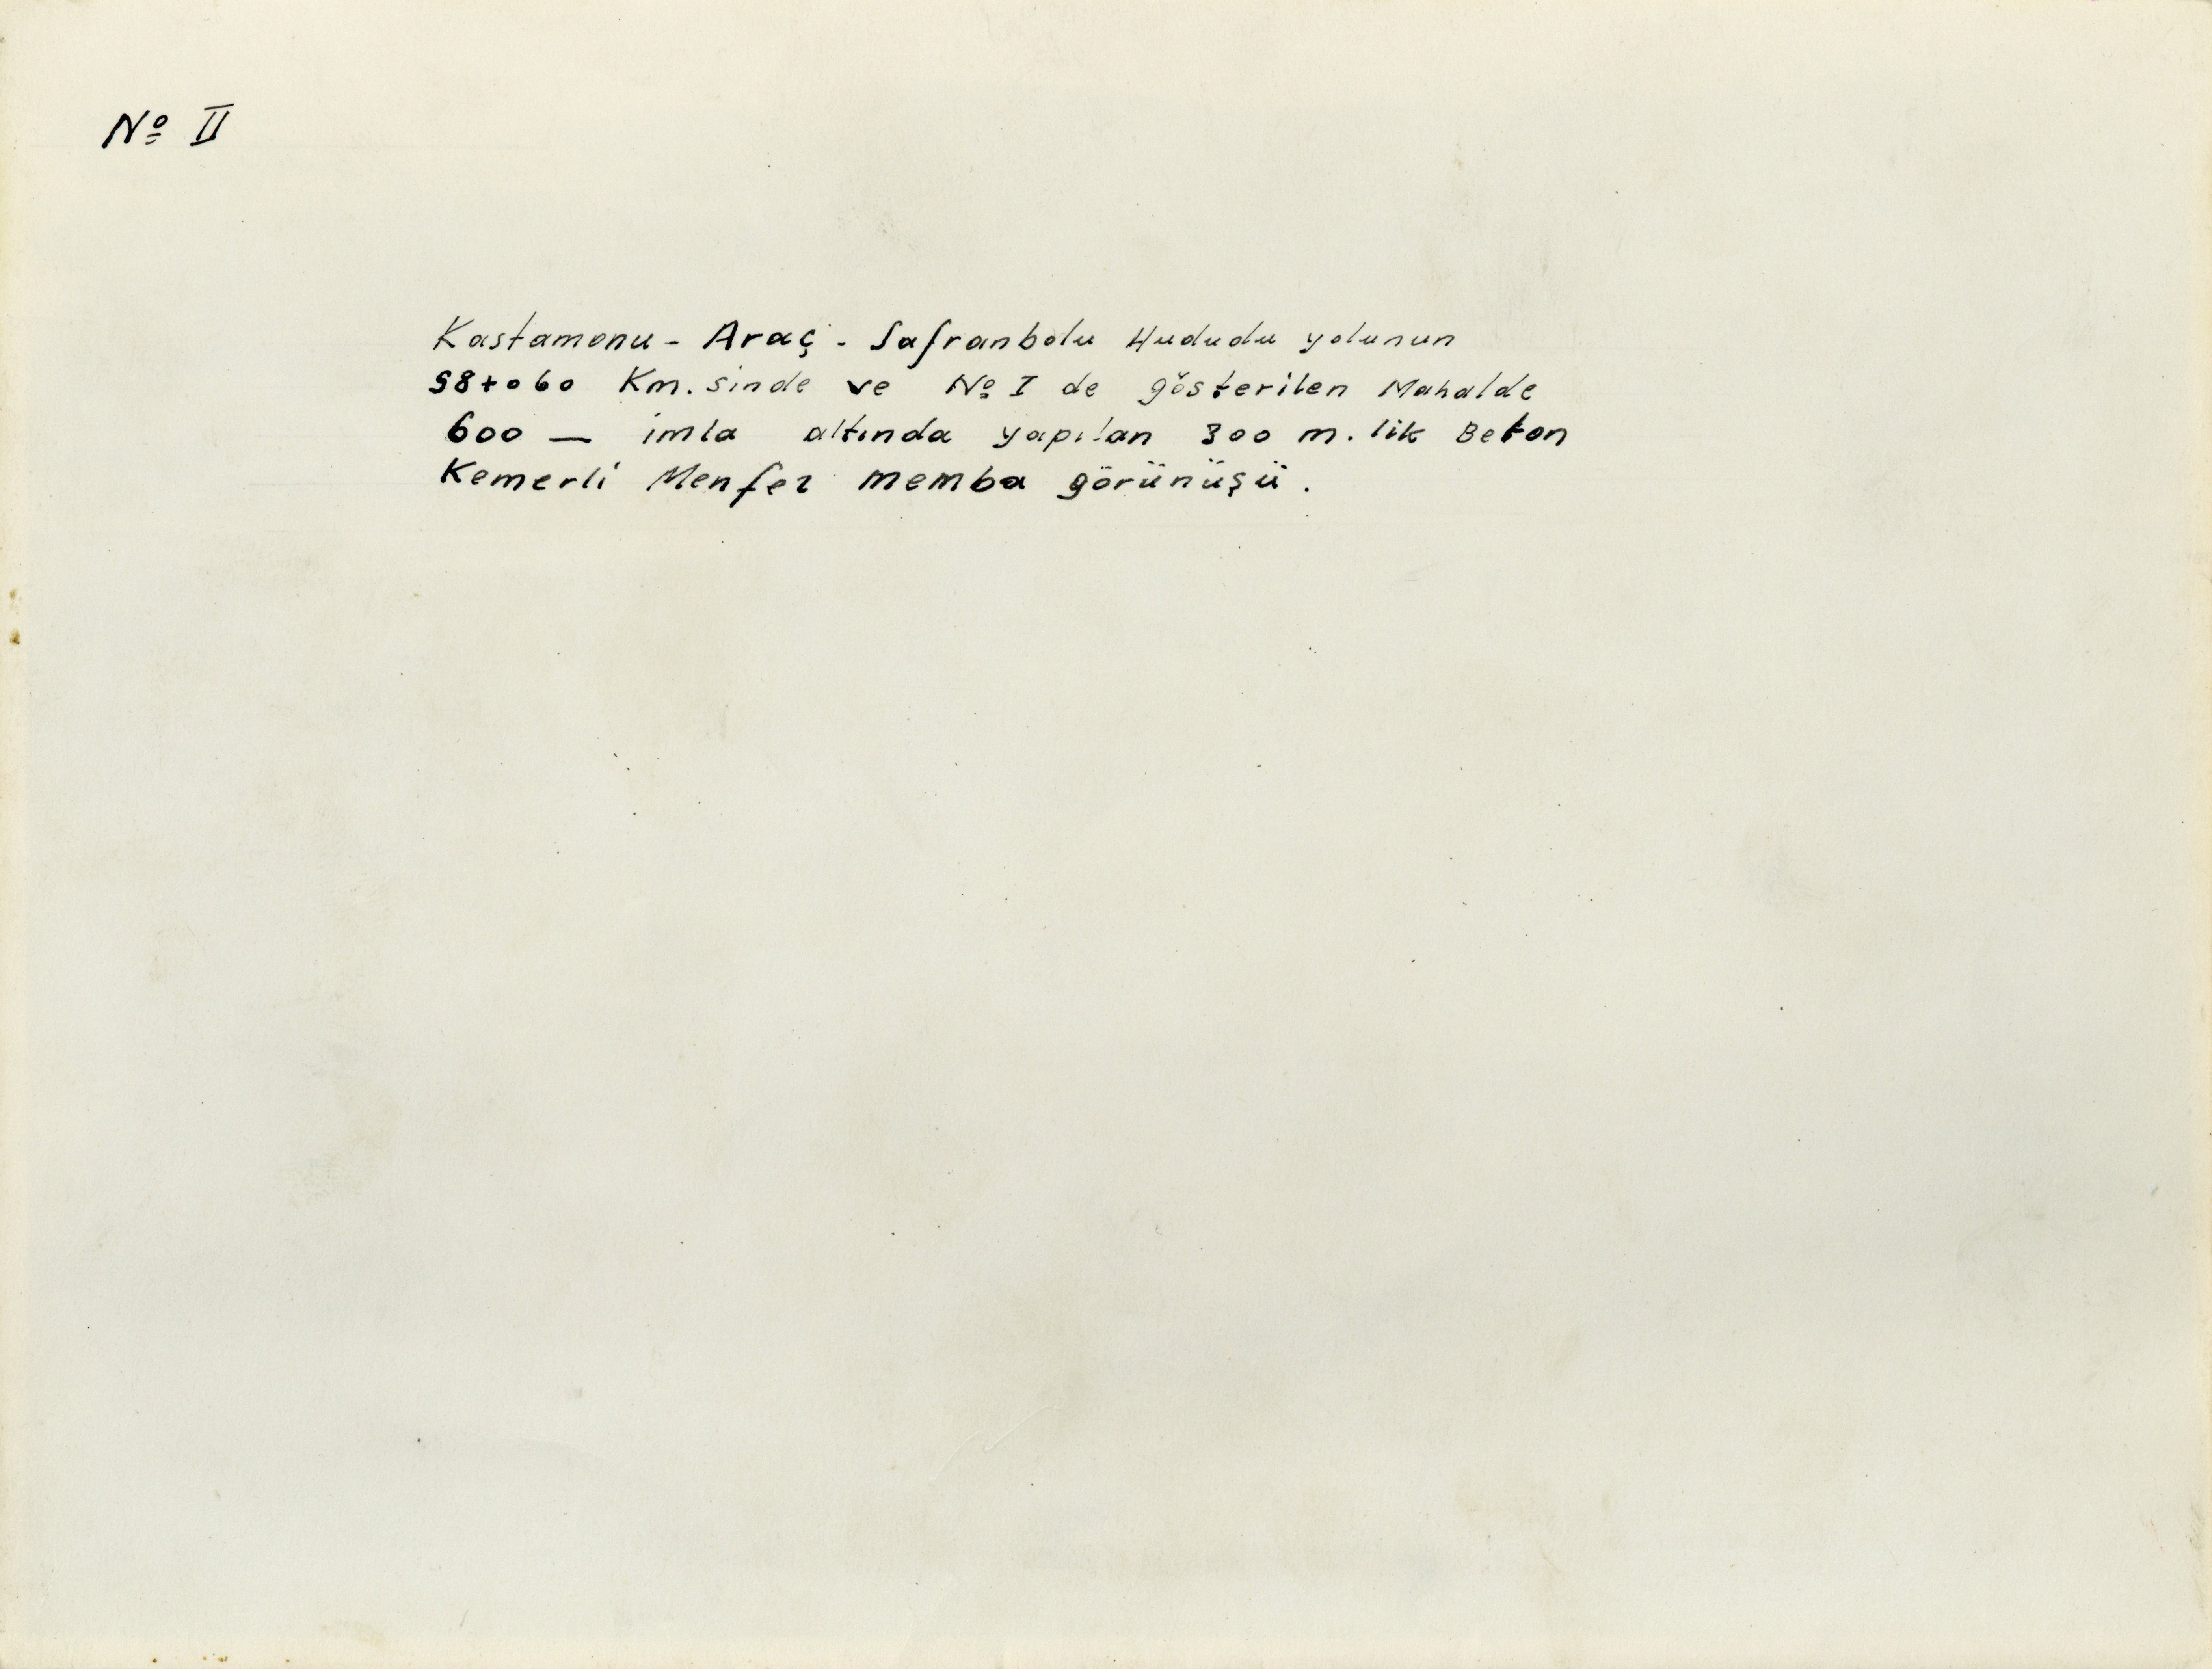 Nº II
Kastamonu - Araç - Safranbolu Hududu yolunun
58+060 Km. sinde ve Nº I de gösterilen Mahalde
600 — imla altında yapılan 300 m. lik Beton
Kemerli Menfez memba görünüşü.